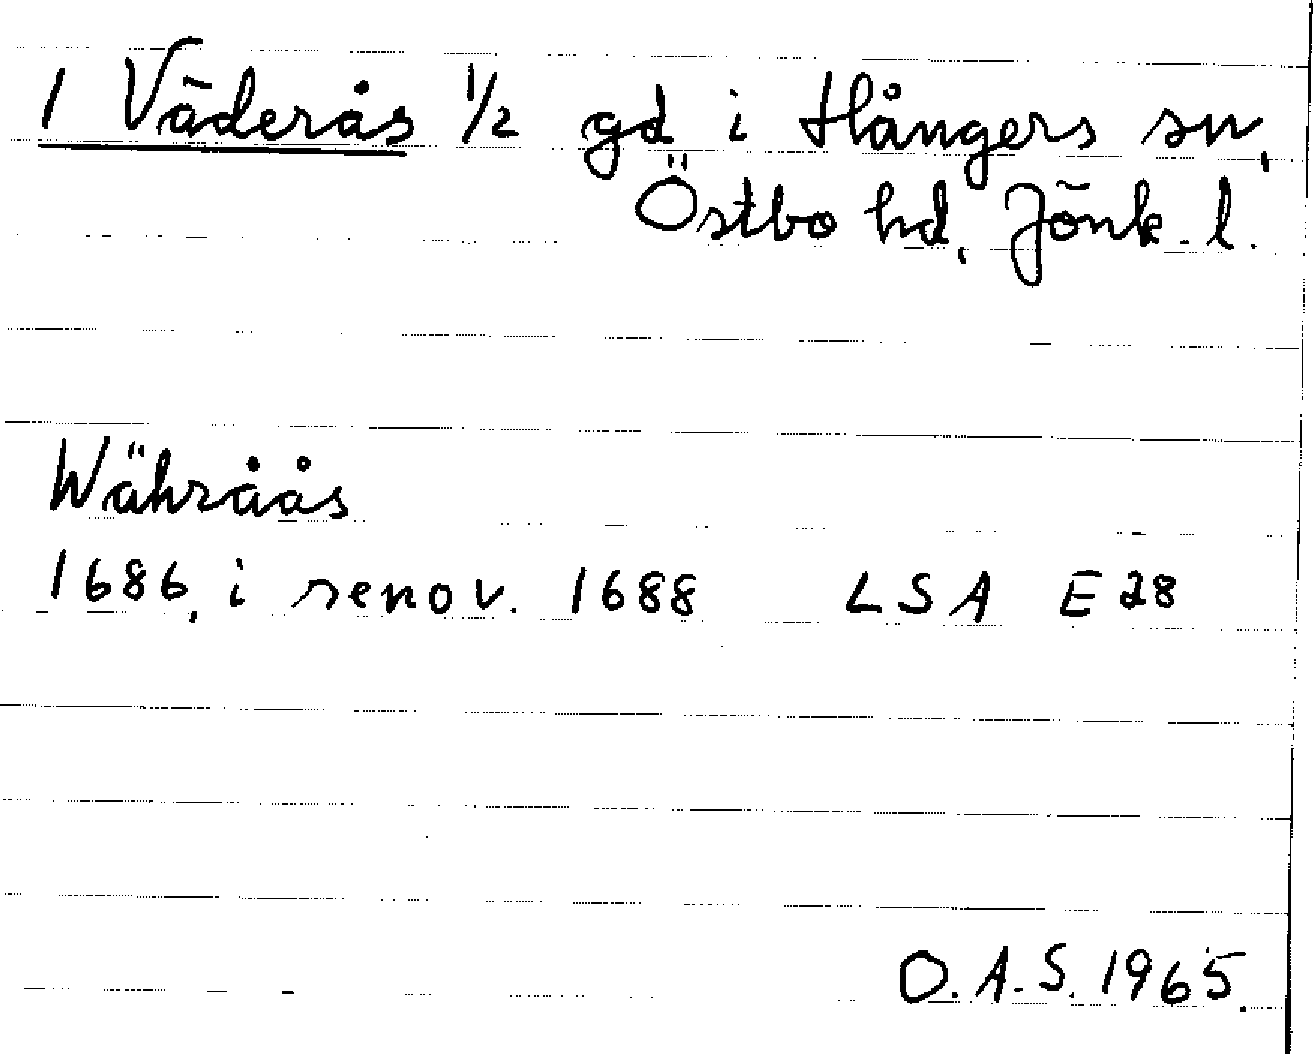 1 Väderås 1/2 gd i Hångers sn,
Östbo hd, Jönk. l.
Währåås
1686, i renov. 1688 LSA E 28
O.A.S. 1965.